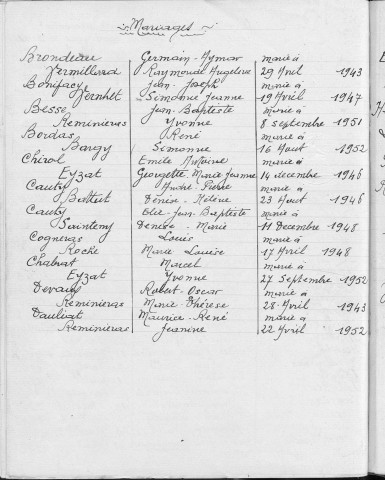 Mariages
Brondeau Germain-Aymar marié à
Vermillard Raymonde Angeline 29 Avril 1943
Bonifacy Jean-Joseph marié à
Vernhet Simonne Jeanne 19 Avril 1947
Besse Jean-Baptiste marié à
Reminieras Yvonne 8 septembre 1951
Bordas René marié à
Bargy Simonne 16 Aout 1952
Chirol Emile Antoine marié à
Eyzat Georgette-Marie Jeanne 14 décembre 1946
Cauty André-Pierre marié à
Battut Denise-Hélène 23 Aout 1946
Cauty Elie-Jean-Baptiste marié à
Sainteny Denise-Marie 11 Décembre 1948
Cogneras Louis marié à
Roche Marie Louise 17 Avril 1948
Chabrat Marcel marié à
Eyzat Yvonne 27 Septembre 1952
Devaud Robert-Oscar marié à
Reminieras Marie-Thérèse 28 Avril 1943
Dauliat Maurice-René marié à
Reminieras Jeanine 22 Avril 1952